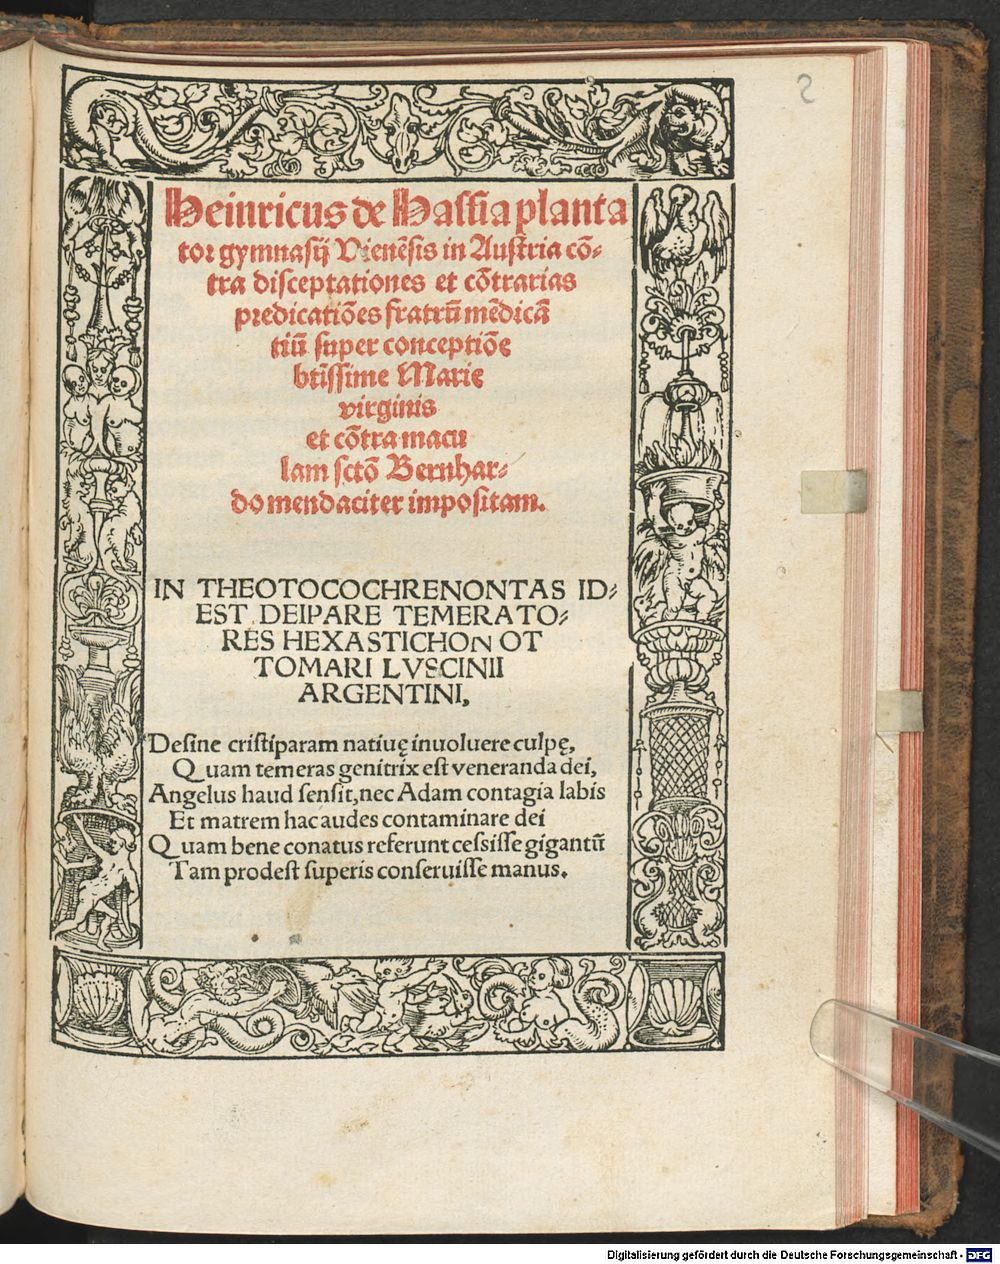 2
Heinricus de Hassia planta
tor gymnasij Vienēsis in Austria cō-
tra disceptationes et cōtrarias
predicatiōes fratrū mēdicā
tiū super conceptiōe
btīssime Marie
virginis
et cōtra macu
lam sctō Bernhar-
do mendaciter impositam.
IN THEOTOCOCHRENONTAS ID-
EST DEIPARE TEMERATO-
RES HEXASTICHON OT
TOMARI LVSCINII
ARGENTINI,
Desine cristiparam natiuę inuoluere culpę,
Quam temeras genitrix est veneranda dei,
Angelus haud sensit, nec Adam contagia labis
Et matrem hac audes contaminare dei
Quam bene conatus referunt cessisse gigantū
Tam prodest superis conseruisse manus.
Digitalisierung gefördert durch die Deutsche Forschungsgemeinschaft - DFG